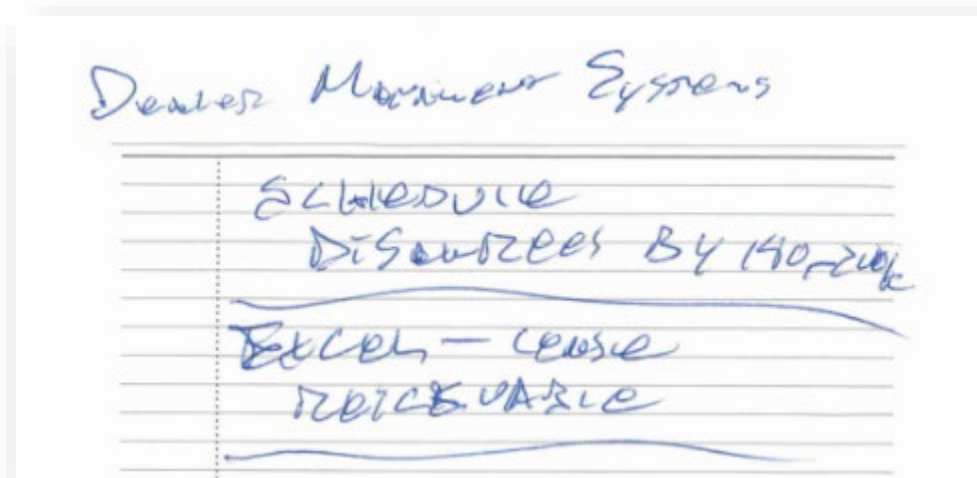 Dealer Movement Systems
SCHEDULE
DISAGREES BY 190-210k
EXCEL - LEASE
RECIEVABLE